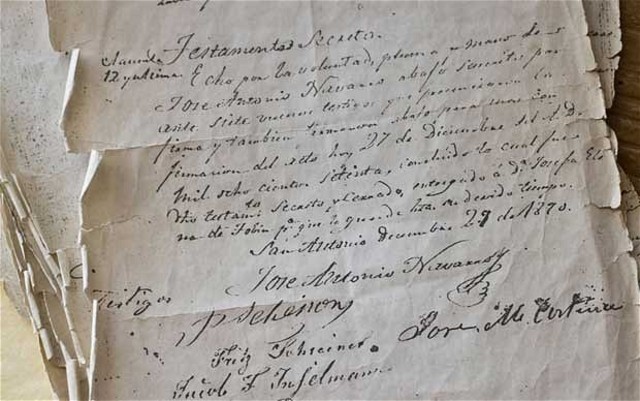 Testamento Secreto.
12 y ultima. Echo por la voluntad, pluma y mano de
Jose Antonio Navarro abajo suscrito, por
ante siete vecinos testigos que presenciaron la
firma y tambien firmaron abajo para mas con
firmacion del acto hoy 27 de Diciembre del A. D.
mil ocho cientos setenta, concluido lo cual fue
dho testamto secreto y cerrado, entregido á Da. Josefa
na de Tobin pa. que lo guarde hta. su devido tiempo.
San Antonio Decembre 27 de 1870.
Jose Antonio Navarro
Testigos
Fritz Schreiner.
Jose M.
Jacob F Inselmann